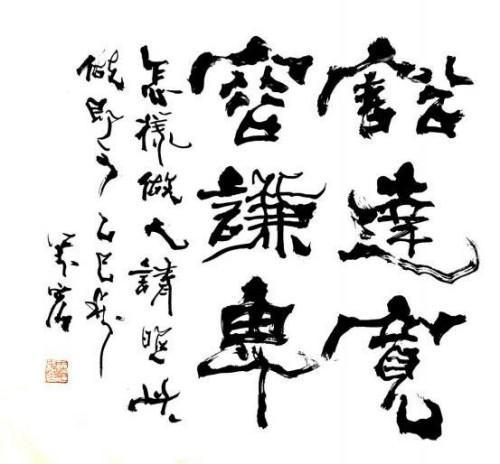 豁達寬
容謙卑
怎樣做人請照此
做即可 乙巳秋